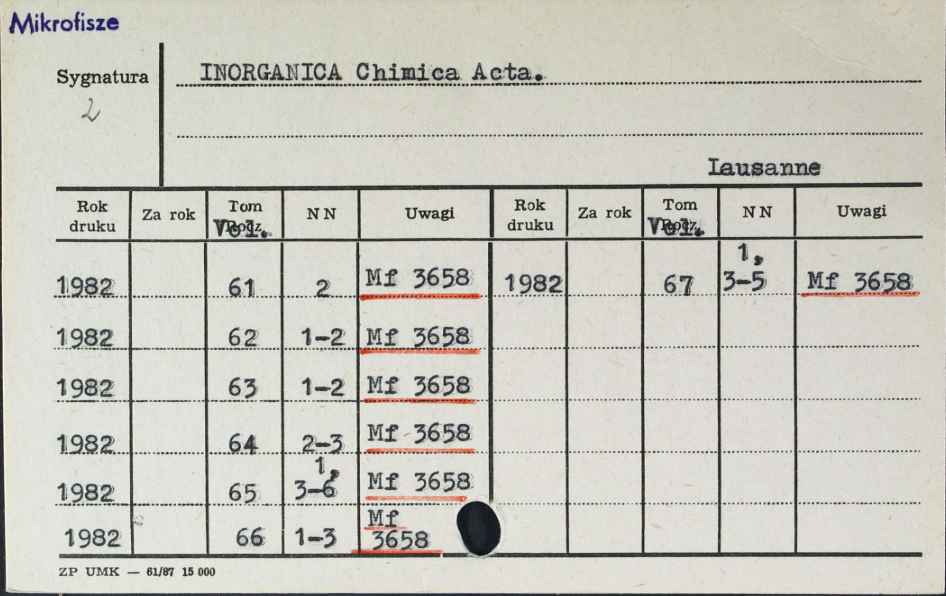 Mikrofisze
Sygnatura INORGANICA Chimica Acta.
2
Lausanne
Rok druku Za rok Tom Rocz. Vol. NN Uwagi Rok druku Za rok Tom Rocz. Vol. NN Uwagi
1982 61 2 Mf 3658 1982 67 1, 3-5 Mf 3658
1982 62 1-2 Mf 3658
1982 63 1-2 Mf 3658
1982 64 2-3 Mf 3658
1982 65 1, 3-6 Mf 3658
1982 66 1-3 Mf 3658
ZP UMK — 61/87 15 000